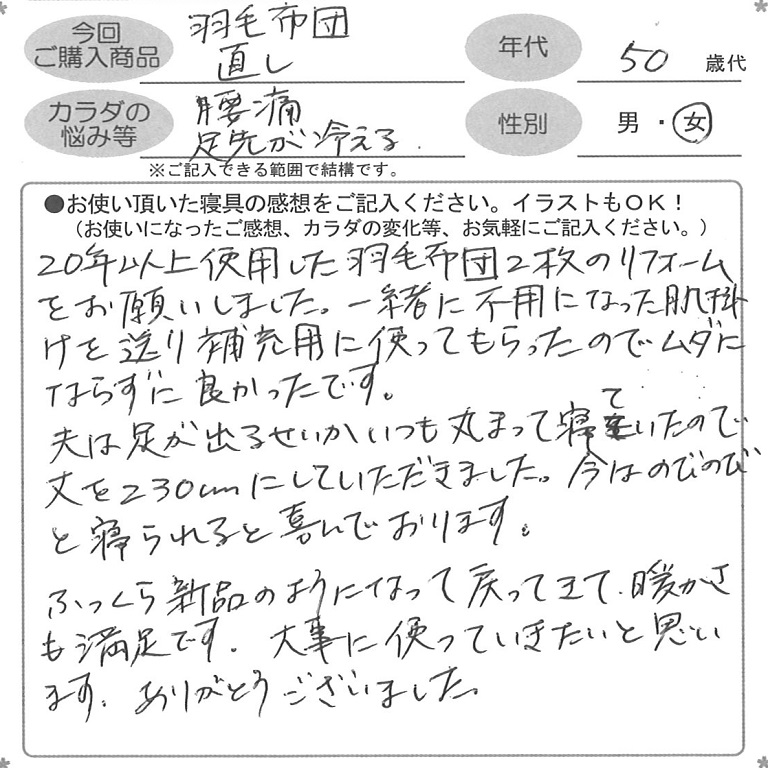 今回
ご購入商品
羽毛布団
直し
年代
50 歳代
カラダの
悩み等
腰痛
足先が冷える.
性別
男・女
※ご記入できる範囲で結構です。
●お使い頂いた寝具の感想をご記入ください。イラストもOK!
(お使いになったご感想、カラダの変化等、お気軽にご記入ください。)
20年以上使用した羽毛布団2枚のリフォーム
をお願いしました。一緒に不用になった肌掛
けを送り補充用に使ってもらったのでムダに
ならずに良かったです。
夫は足が出るせいかいつも丸まって寝ていたので
丈を230cmにしていただきました。今はのびのび
と寝られると喜んでおります。
ふっくら新品のようになって戻ってきて、暖かさ
も満足です。大事に使っていきたいと思い
ます。ありがとうございました。